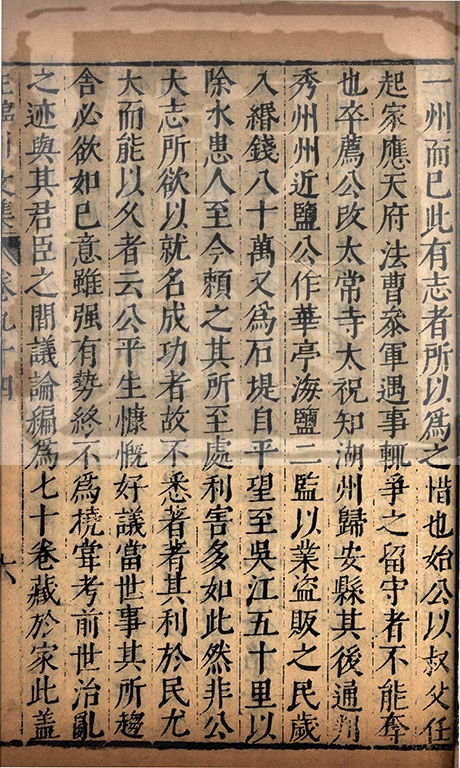 一州而已此有志者所以爲之惜也始公以叔父任
起家應天府法曹叅軍遇事輒爭之留守者不能奪
也卒薦公改太常寺太祝知湖州歸安縣其後通判
秀州州近鹽公作華亭海鹽二監以業盜販之民歲
入緡錢八十萬又爲石堤自平望至吳江五十里以
除水患人至今賴之其所至處利害多如此然非公
大志所欲以就名成功者故不悉著著其利於民尤
大而能以久者云公平生慷慨好議當世事其所趨
舍必欲如已意雖强有勢終不爲撓甞考前世治亂
之迹與其君臣之間議論編爲七十卷藏於家此盖
王臨川文集 卷九十四 六